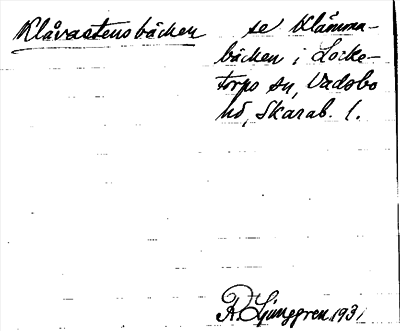 Klåvastensbäcken se Klämma-
bäcken i Locke-
torps sn, Vadsbo
hd, Skarab. l.
R. Ljunggren 1931